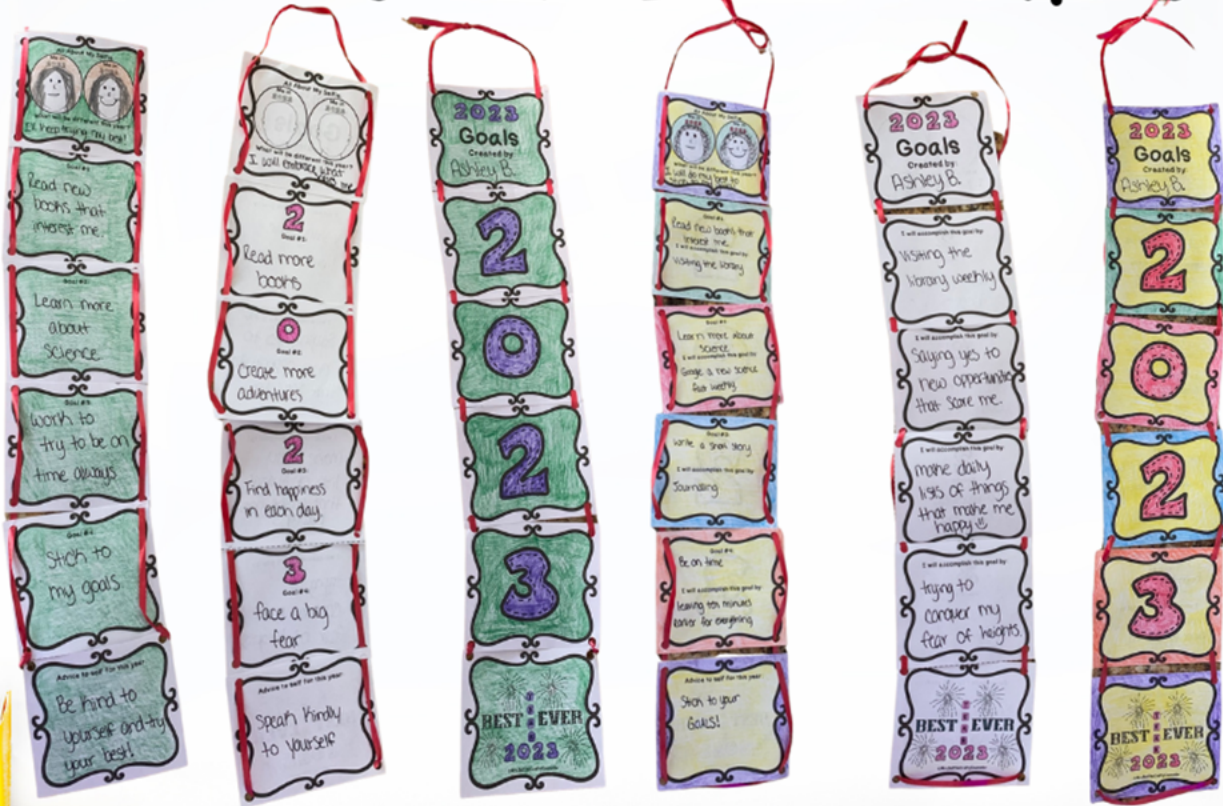 All About My Selfie
Me in
2022
Me in
2023
What will be different this year?
I'll keep trying my best!
Goal #1:
Read new
books that
interest me.
Goal #2:
Learn more
about
science
Goal #3:
work to
try to be on
time always
Goal #4:
Stick to
my goals
Advice to self for this year
Be kind to
yourself and try
your best!
All About My Selfie
Me in
2022
Me in
2023
What will be different this year?
I will embrace what
me
2
Goal #1:
Read more
books
0
Goal #2:
Create more
adventures
2
Goal #3:
Find happiness
in each day.
3
Goal #4:
face a big
fear
Advice to self for this year
Speak kindly
to yourself
2023
Goals
Created by:
Ashley B.
2
0
2
3
BEST YEAR EVER
2023
All About My Selfie
Me in
2022
Me in
2023
What will be different this year?
I will do my best to
Goal #1:
Read new books that
interest me.
I will accomplish this goal by:
Visiting the library
Learn more about
science
I will accomplish this goal by:
Google a new science
fact weekly.
Goal #3:
write a short story
I will accomplish this goal by:
Journaling
Goal #4:
Be on time
I will accomplish this goal by:
leaving ten minutes
earlier for everything
Advice to self for this year
Stick to your
GOALS!
2023
Goals
Created by:
Ashley B.
I will accomplish this goal by:
Visiting the
library weekly
I will accomplish this goal by:
Saying yes to
new opportunities
that scare me.
I will accomplish this goal by:
make daily
lists of things
that make me
happy
I will accomplish this goal by:
trying to
conquer my
fear of heights.
BEST YEAR EVER
2023
2023
Goals
Created by:
Ashley B.
2
0
2
3
BEST YEAR EVER
2023